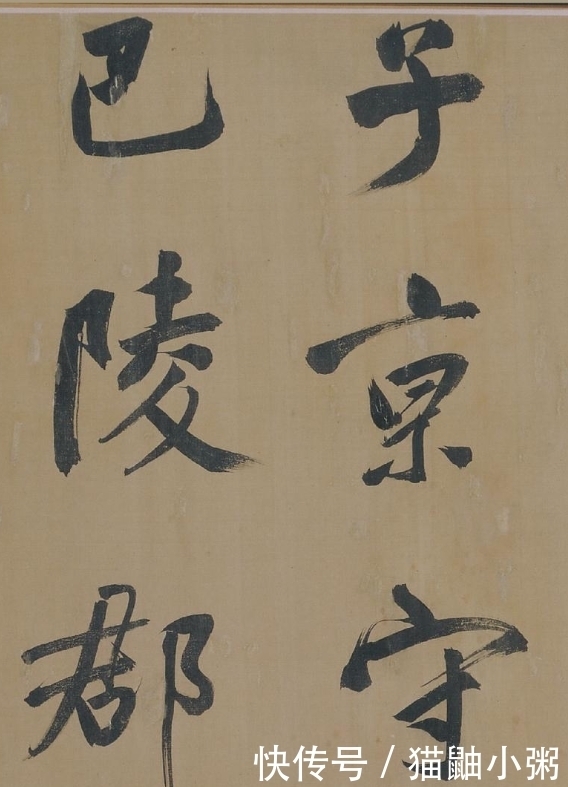 子京守
巴陵郡
快传号 / 猫鼬小粥